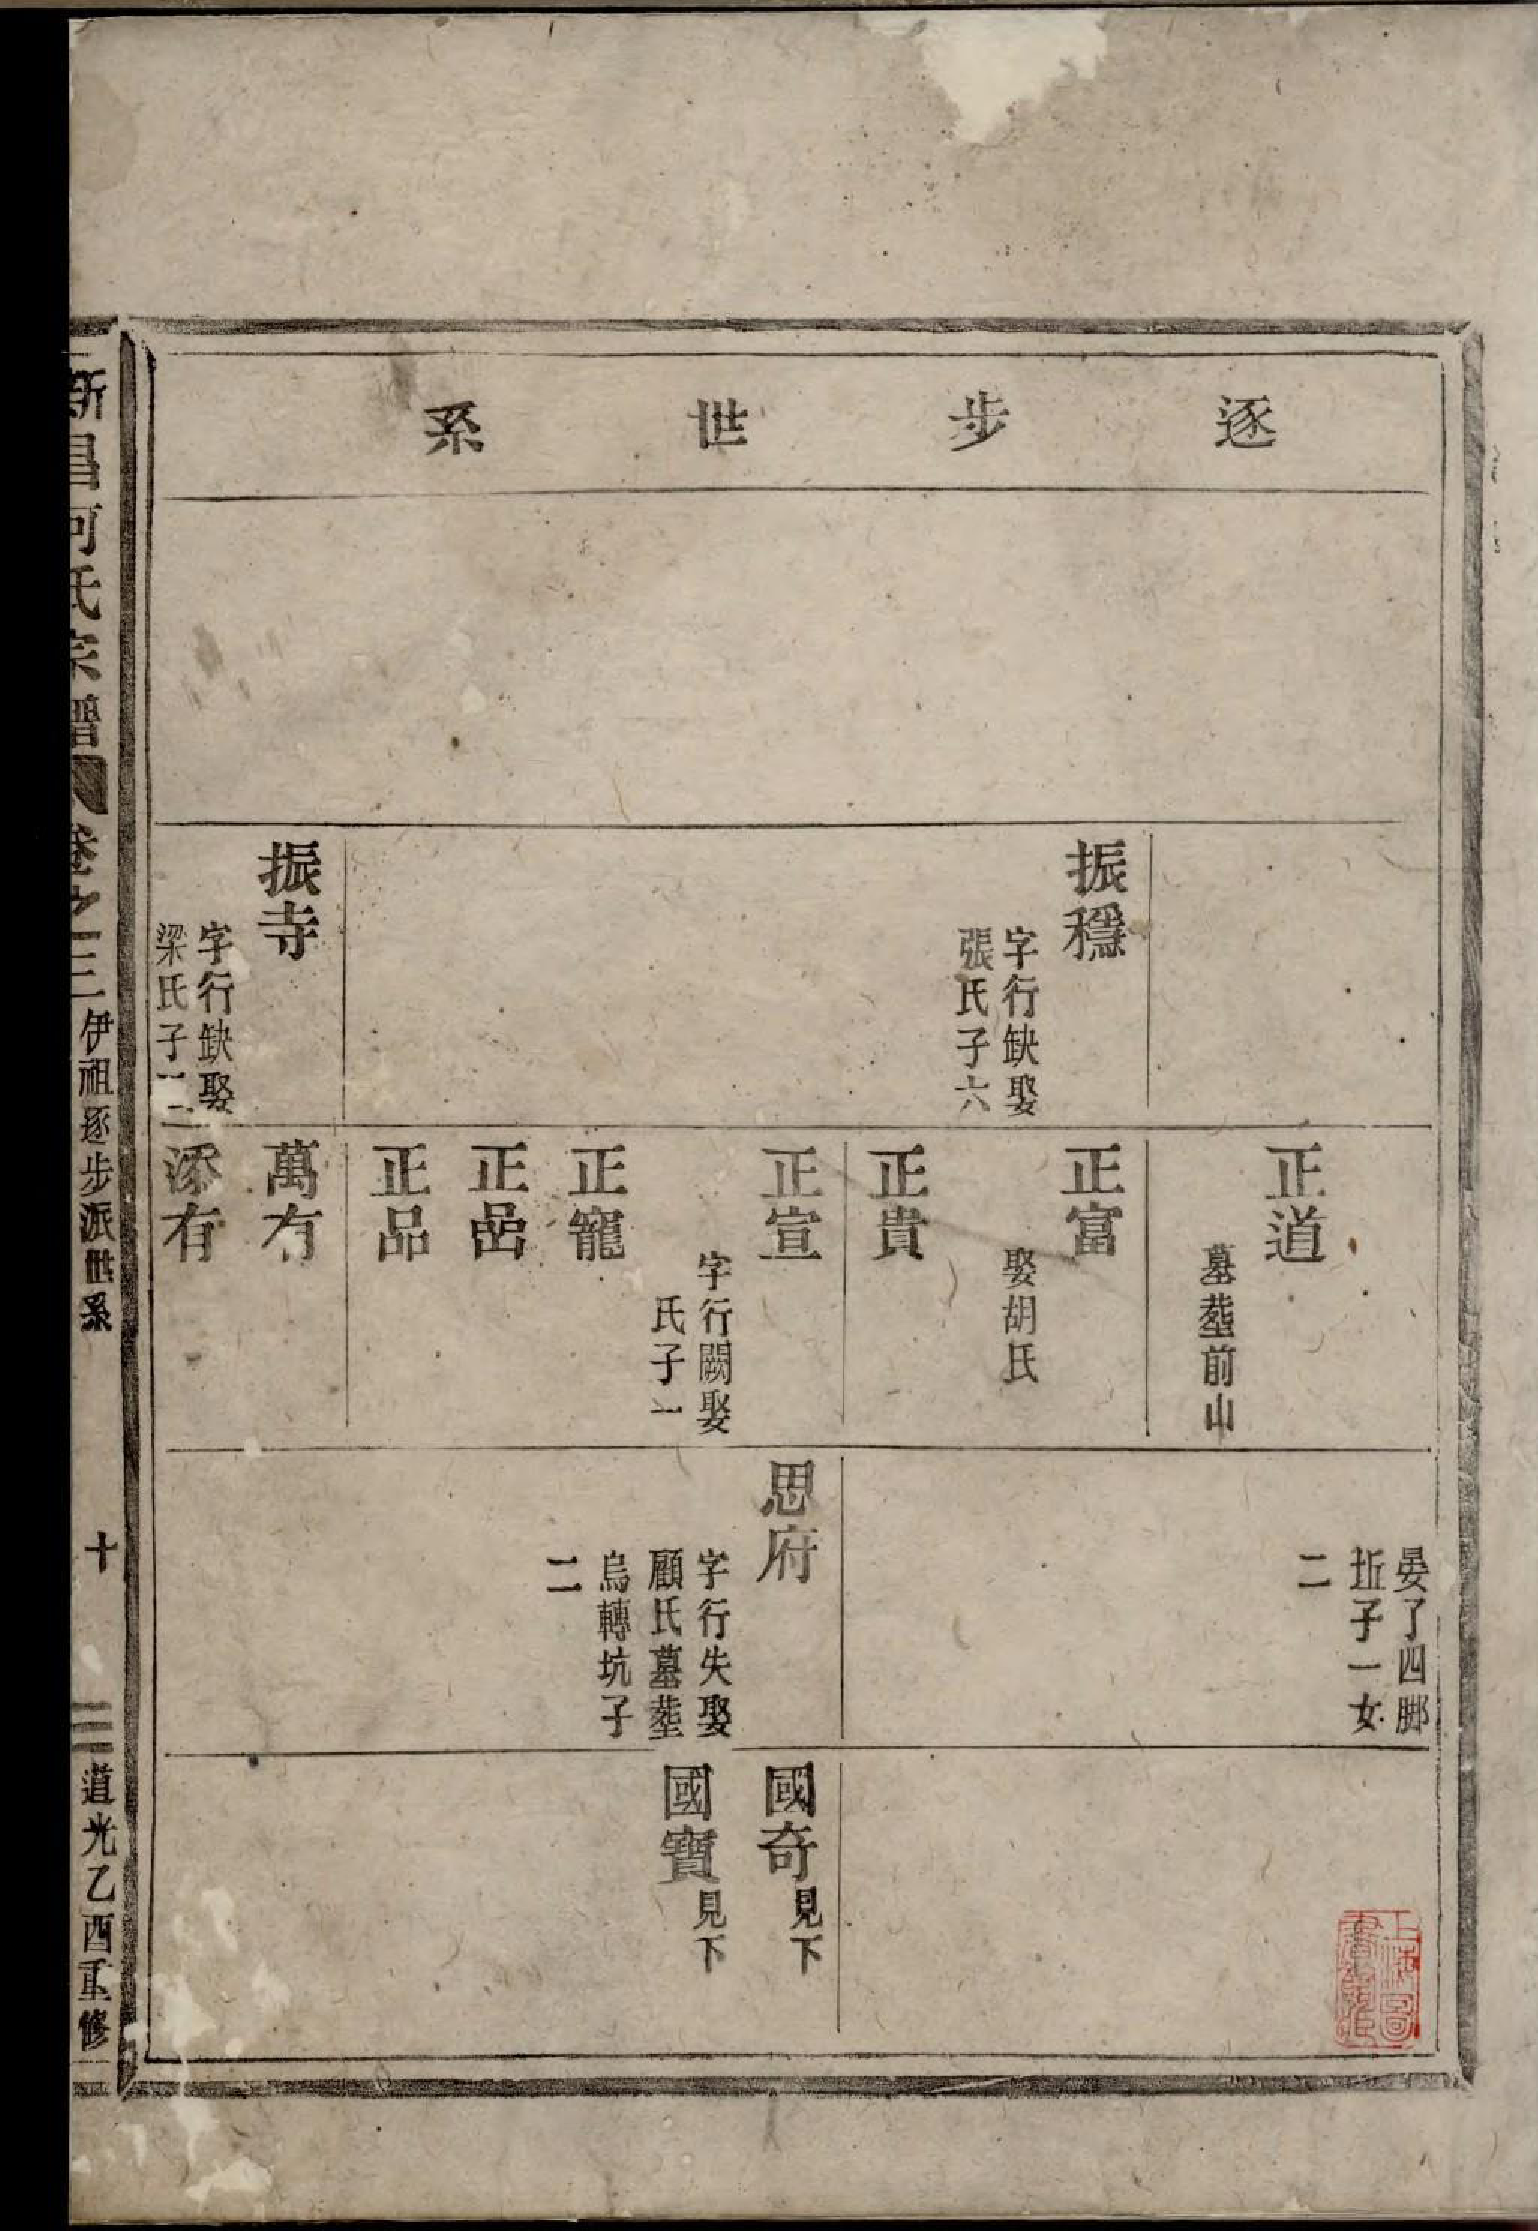 逐步世系
振穩
字行缺娶
張氏子六
振寺
字行缺娶
梁氏子二
正道
墓塟前山
正富
娶胡氏
正貴
正宣
字行闕娶
氏子一
正寵
正嵒
正品
萬有
添有
晏了四脚
坵子一女
二
思府
字行失娶
顧氏墓塟
烏轉坑子
二
國奇見下
國寶見下
新昌何氏宗譜
卷之三
伊祖逐步派世系
十
道光乙酉重修
上海圖書館藏